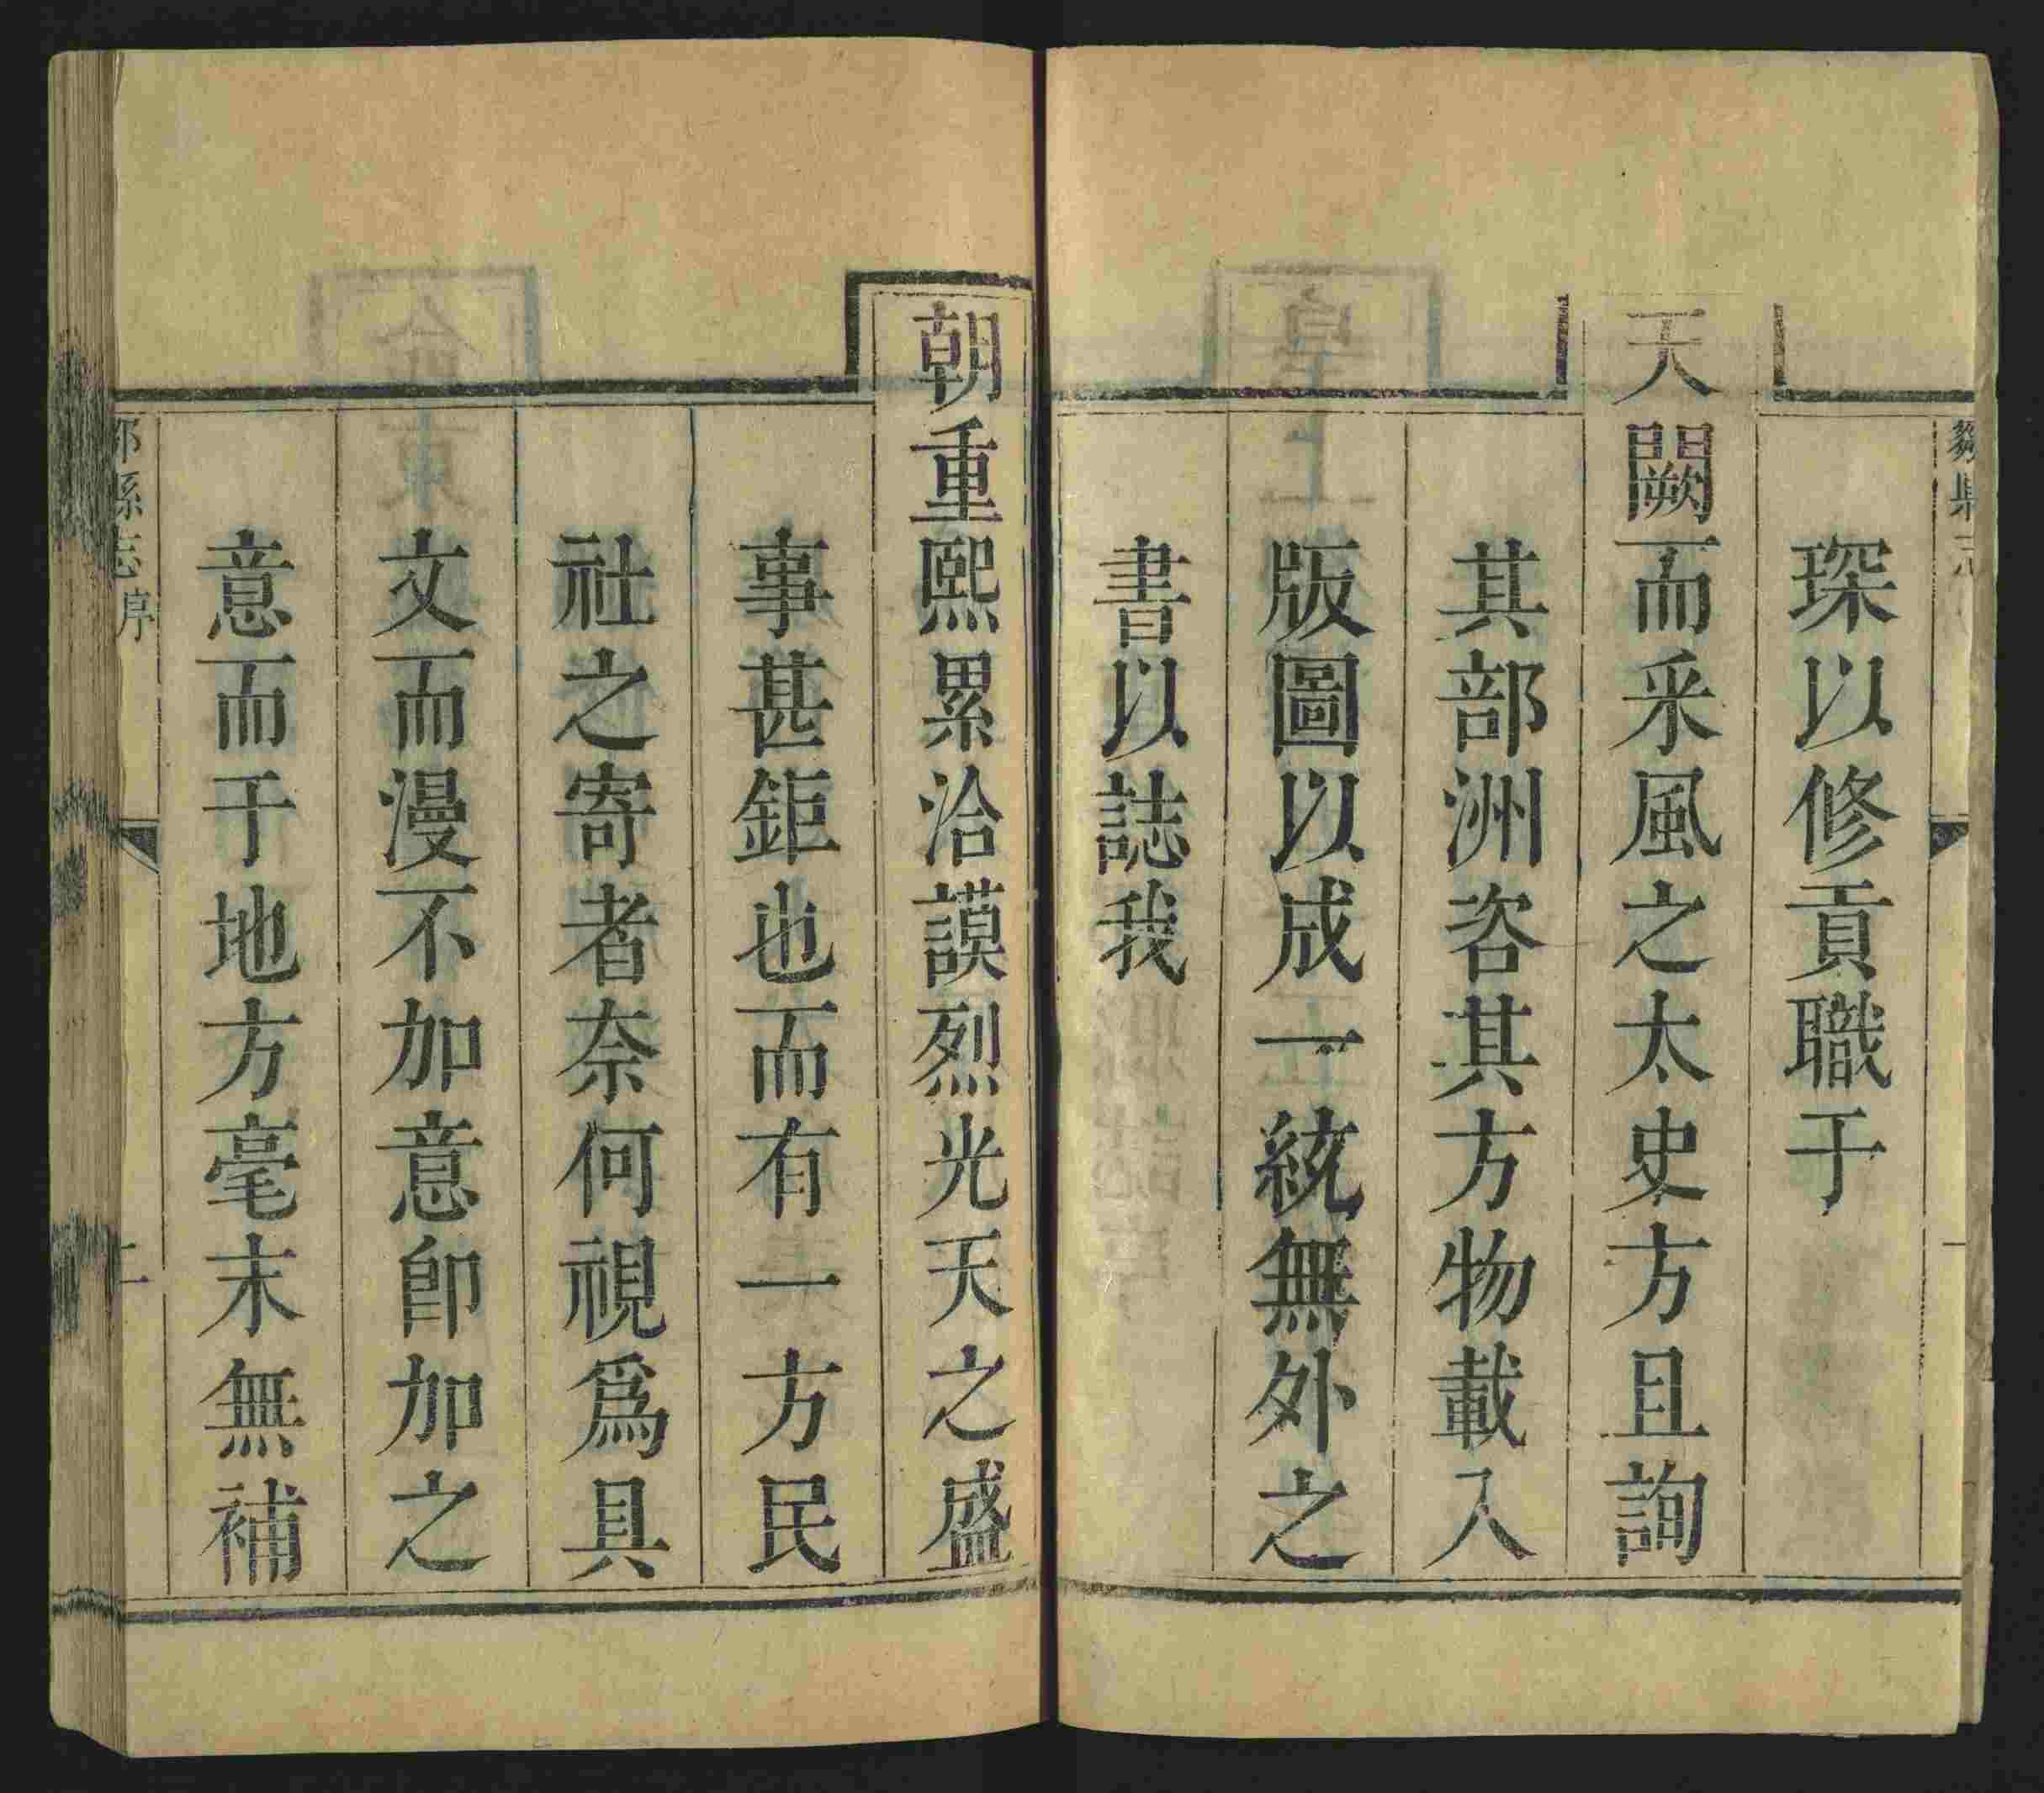 琛以修貢職于
天闕而釆風之太史方且詢
其部洲咨其方物載入
版圖以成一統無外之
書以誌我
朝重熙累洽謨烈光天之盛
事甚鉅也而有一方民
社之寄者奈何視爲具
文而漫不加意卽加之
意而于地方毫末無補
縣志序
二